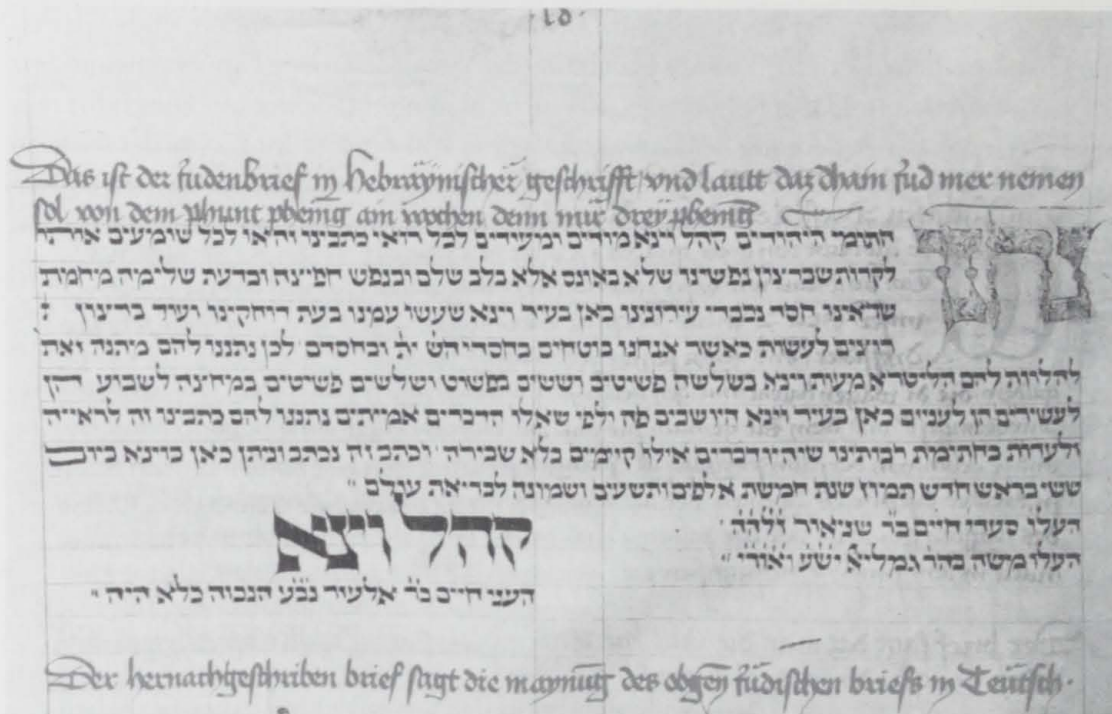 · 15 ·
Das ist der Judenbrief in Hebraynischer geschrifft vnd lautt daz dhain Jud mer nemen
sol von dem phunt phening ain wochen denn nur drey phening
אנו
חתומי היהודים קהל וינא מודים ומעידים לכל רואי כתבינו זה או לכל שומעים אותו
לקרות שברצון נפשינו שלא באונס אלא בלב שלם ובנפש חפיצה ובדעת שלימה מחמת
שראינו חסד נכבדי עירונינו כאן בעיר וינא שעשו עמנו בעת דוחקינו ועוד ברצון
רוצים לעשות כאשר אנחנו בוטחים בחסדי הש׳ ית׳ ובחסדם לכן נתננו להם מתנה זאת
להלוות להם הליטרא מעות וינא בשלשה פשיטים וששים בפשוט ושלשים פשיטים במחצה לשבוע הן
לעשירים הן לעניים כאן בעיר וינא היושבים פה ולפי שאלו הדברים אמיתים נתננו להם כתבינו זה לראייה
ולעדות בחתימת רבותינו שיהיו דברים אילו קיימים בלא שבירה וכתב זה נכתב ונתן כאן בוינא ביום
ששי בראש חדש תמוז שנת חמשת אלפים ותשעים ושמונה לבריאת עולם
העלוב סעדי׳ חיים בר׳ שניאור זלה״ה
קהל וינא
העלוב משה בהר׳ גמליא׳ ישע ואורי׳
העני חיים בר׳ אלעזר נב״ע הנכוה בלא היה
Der hernachgeschriben brief sagt die maynung des obgen Judischen briefs in Teutsch ·